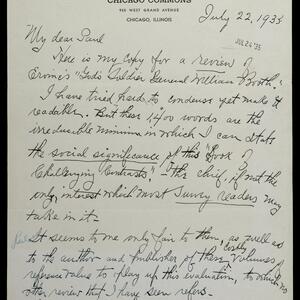 CHICAGO COMMONS
955 WEST GRAND AVENUE
CHICAGO, ILLINOIS
July 22, 1935
JUL 24 '35
My dear Paul
Here is my copy for a review of
Ervine's "God's Soldier General William Booth."
I have tried hard to condense yet make it
readable. But these 1400 words are the
irreducible minimum in which I can state
the social significance of this "Book of
Challenging Contrasts." The chief, if not the
only, interest which most Survey readers may
take in it.
It seems to me only fair to them, as well as
to the author and publisher of these costly Volumes of
reference value to play up this evaluation, to which no
other review that I have seen refers.